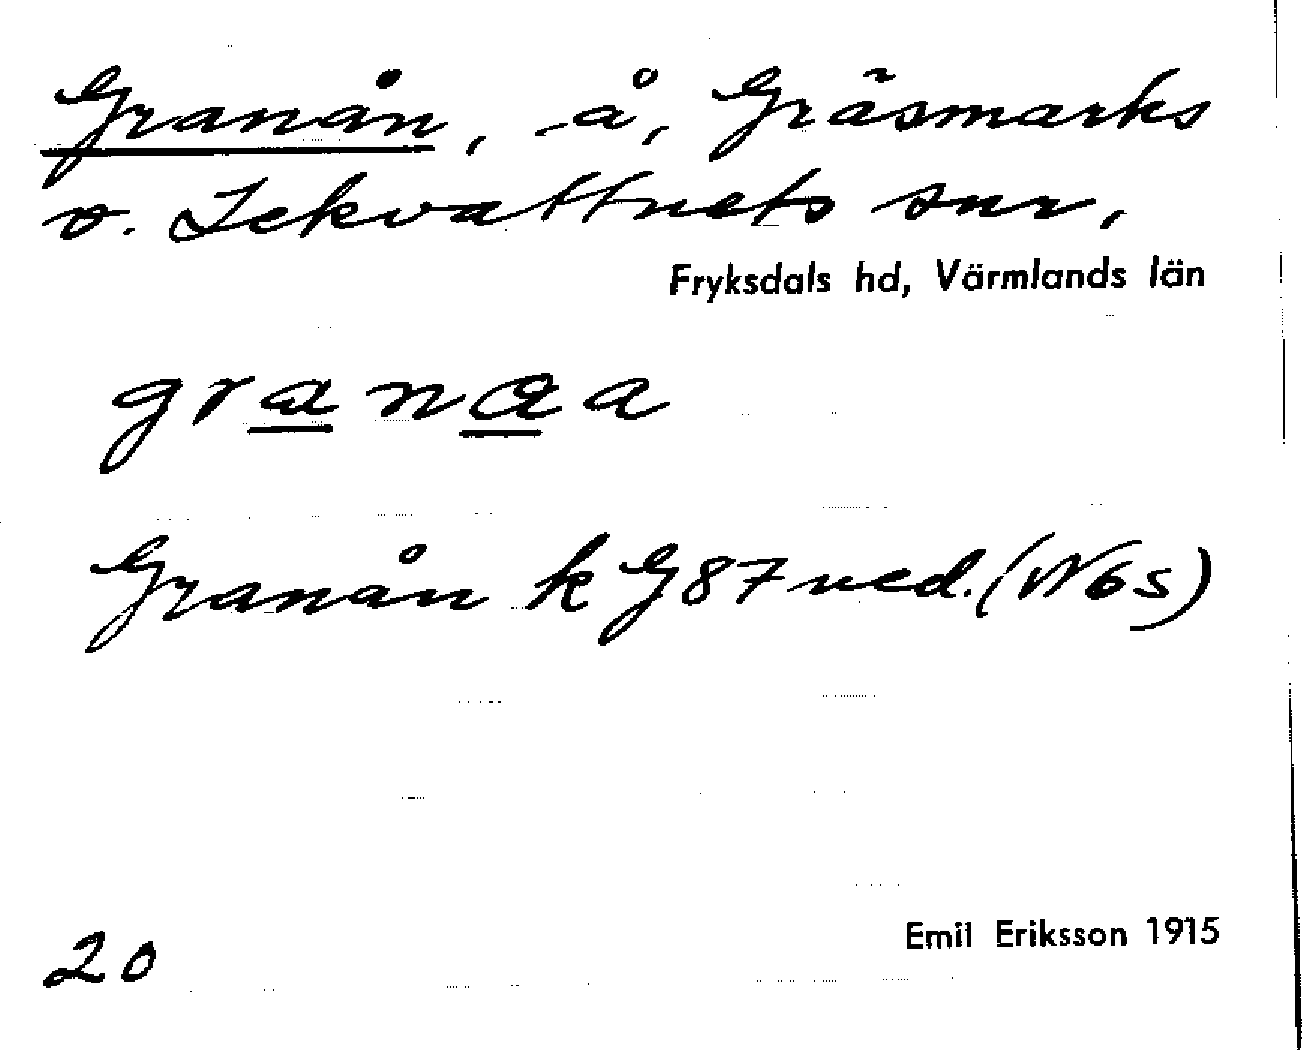 Granån, -å, Gräsmarks
o. Lekvattnets snr,
Fryksdals hd, Värmlands län
granaa
Granån k G87 ned. (W65)
20
Emil Eriksson 1915